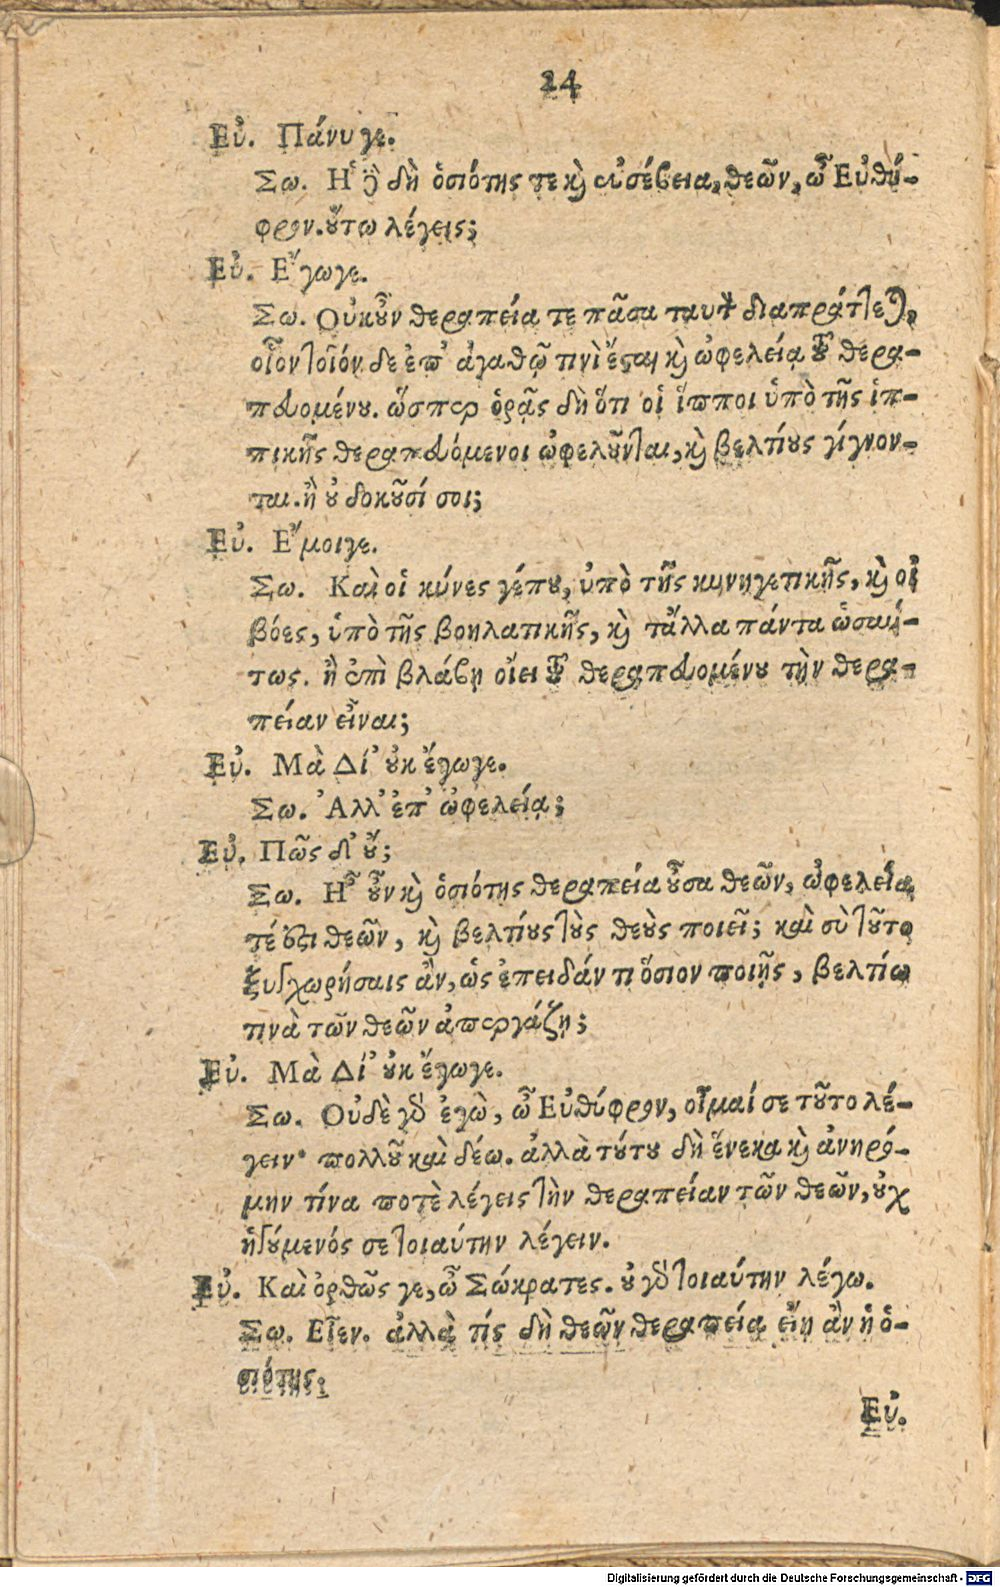 24
Εὐ. Πάνυ γε.
Σω. Ἡ δὲ δὴ ὁσιότης τε καὶ εὐσέβεια, θεῶν, ὦ Εὐθύ-
φρον. οὕτω λέγεις;
Εὐ. Ἔγωγε.
Σω. Οὐκοῦν θεραπεία τε πᾶσα ταυτὸν διαπράττεται,
οἷον τοιόνδε ἐπ' ἀγαθῷ τινὶ ἔσται καὶ ὠφελείᾳ τοῦ θερα-
πευομένου. ὥσπερ ὁρᾷς δὴ ὅτι οἱ ἵπποι ὑπὸ τῆς ἱπ-
πικῆς θεραπευόμενοι ὠφελοῦνται, καὶ βελτίους γίγνον-
ται. ἢ οὐ δοκοῦσί σοι;
Εὐ. Ἔμοιγε.
Σω. Καὶ οἱ κύνες γέπου, ὑπὸ τῆς κυνηγετικῆς, καὶ οἱ
βόες, ὑπὸ τῆς βοηλατικῆς, καὶ τἄλλα πάντα ὡσαύ-
τως. ἢ ἐπὶ βλάβῃ οἴει τοῦ θεραπευομένου τὴν θερα-
πείαν εἶναι;
Εὐ. Μὰ Δί' οὐκ ἔγωγε.
Σω. Ἀλλ' ἐπ' ὠφελείᾳ;
Εὐ. Πῶς δ' οὔ;
Σω. Ἦ οὖν καὶ ὁσιότης θεραπεία οὖσα θεῶν, ὠφελεία
τέ ἐστι θεῶν, καὶ βελτίους τοὺς θεοὺς ποιεῖ; καὶ σὺ τοῦτο
ξυγχωρήσαις ἂν, ὡς ἐπειδάν τι ὅσιον ποιῇς, βελτίω
τινὰ τῶν θεῶν ἀπεργάζῃ;
Εὐ. Μὰ Δί' οὐκ ἔγωγε.
Σω. Οὐδὲ γὰρ ἐγὼ, ὦ Εὐθύφρον, οἶμαί σε τοῦτο λέ-
γειν· πολλοῦ καὶ δέω. ἀλλὰ τούτου δὴ ἕνεκα καὶ ἀνηρό-
μην τίνα ποτὲ λέγεις τὴν θεραπείαν τῶν θεῶν, οὐχ
ἡγούμενός σε τοιαύτην λέγειν.
Εὐ. Καὶ ὀρθῶς γε, ὦ Σώκρατες. οὐ γὰρ τοιαύτην λέγω.
Σω. Εἶεν. ἀλλὰ τίς δὴ θεῶν θεραπεία εἴη ἂν ἡ ὁ-
σιότης;
Εὐ.
Digitalisierung gefördert durch die Deutsche Forschungsgemeinschaft - DFG